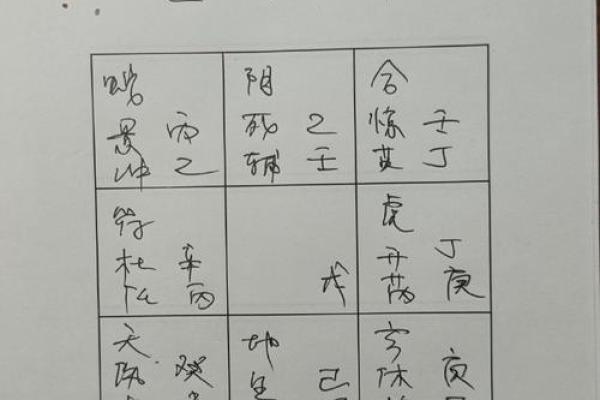 蛇
景 丙
冲 乙
阴
死 乙
辅 壬
合
惊 壬
英 丁
符
杜 辛
任 丙
戊
虎
开 丁
芮 庚
天
伤 癸
地
生 己
玄
休 庚